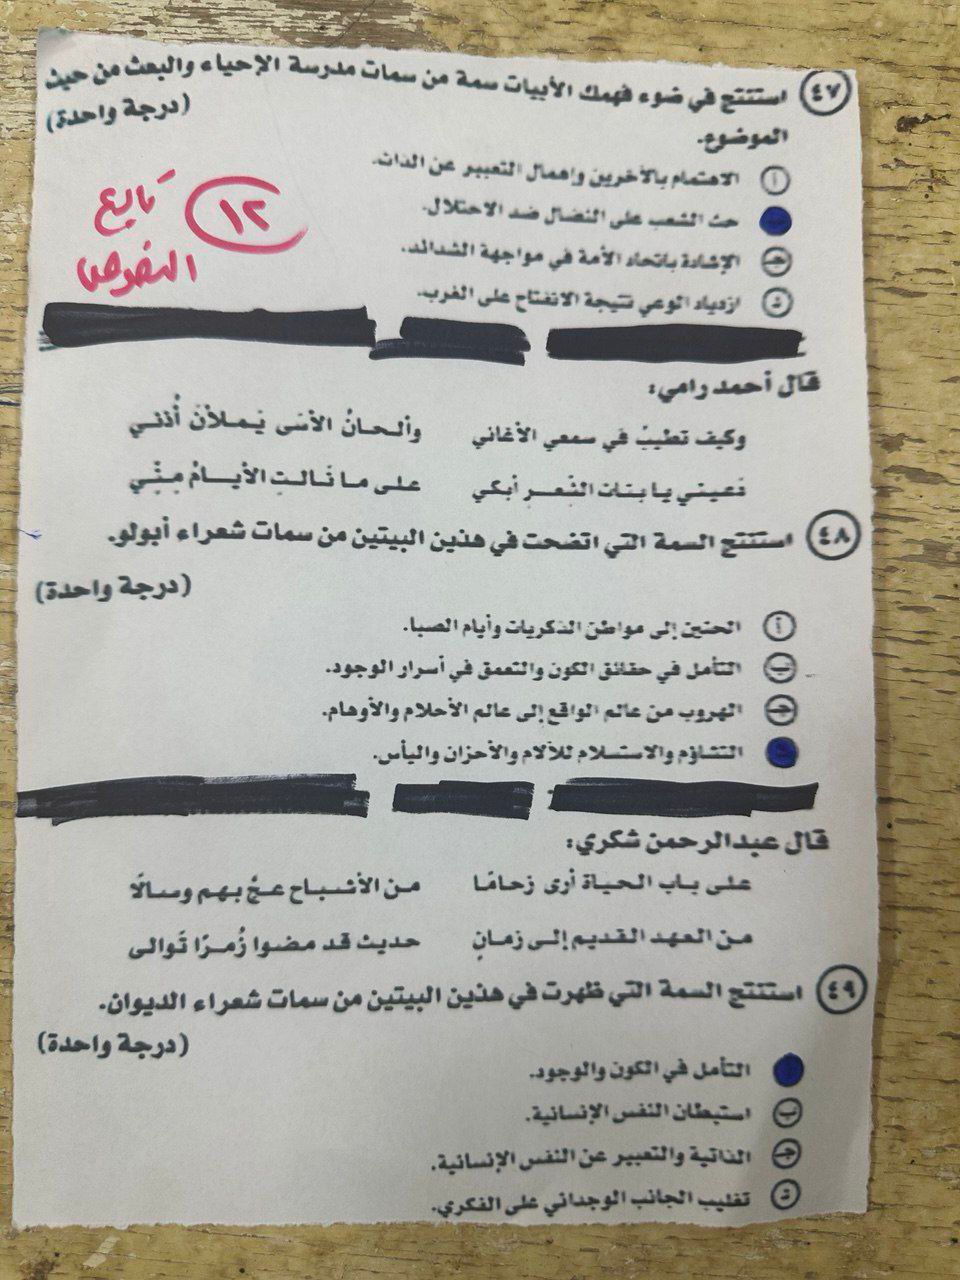 ٤٧ استنتج في ضوء فهمك الأبيات سمة من سمات مدرسة الإحياء والبعث من حيث
الموضوع. (درجة واحدة)
أ الاهتمام بالآخرين وإهمال التعبير عن الذات.
حث الشعب على النضال ضد الاحتلال.
جـ الإشادة باتحاد الأمة في مواجهة الشدائد.
د ازدياد الوعي نتيجة الانفتاح على الغرب.
١٢ تابع
النصوص
قال أحمد رامي:
وكيف تطيبُ في سمعي الأغاني وألحانُ الأسَى يَملأنَ أُذني
دَعيني يا بنات الشِّعر أبكي على ما نَالتِ الأيامُ مِنِّي
٤٨ استنتج السمة التي اتضحت في هذين البيتين من سمات شعراء أبولو.
(درجة واحدة)
أ الحنين إلى مواطن الذكريات وأيام الصبا.
ب التأمل في حقائق الكون والتعمق في أسرار الوجود.
جـ الهروب من عالم الواقع إلى عالم الأحلام والأوهام.
د التشاؤم والاستسلام للآلام والأحزان واليأس.
قال عبدالرحمن شكري:
على باب الحياة أرى زحامًا من الأشباح عجَّ بهم وسالَا
من العهد القديم إلى زمانٍ حديث قد مضوا زُمرًا تَوالى
٤٩ استنتج السمة التي ظهرت في هذين البيتين من سمات شعراء الديوان.
(درجة واحدة)
التأمل في الكون والوجود.
ب استبطان النفس الإنسانية.
جـ الذاتية والتعبير عن النفس الإنسانية.
د تغليب الجانب الوجداني على الفكري.